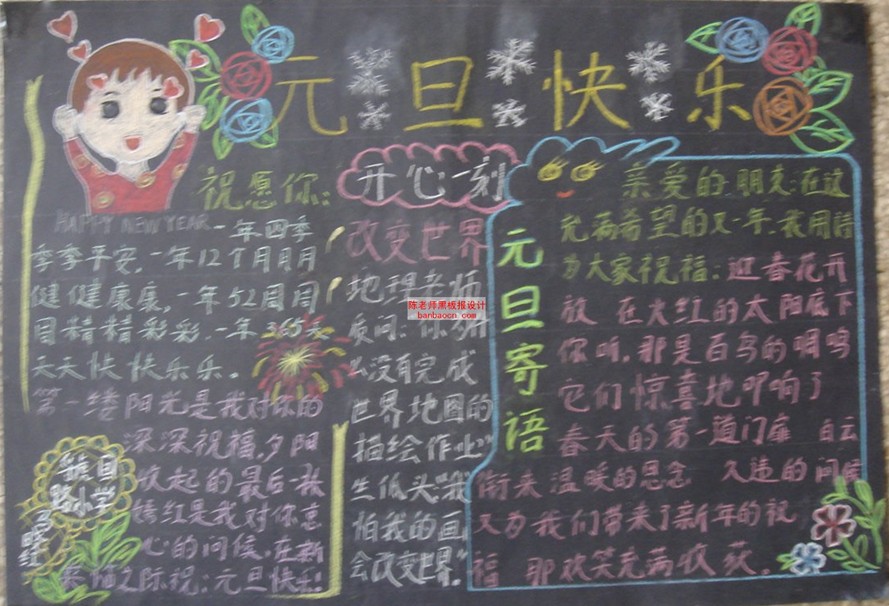 元旦快乐
祝愿你:
HAPPY NEW YEAR
一年四季
季季平安,一年12个月月月
健健康康,一年52周周
周精精彩彩,一年365天
天天快快乐乐。
第一缕阳光是我对你的
深深祝福,夕阳
收起的最后一抹
嫣红是我对你衷
心的问候,在新
来临之际祝:元旦快乐!
路小学
开心一刻
改变世界
地理老师
质问:你为什
么没有完成
世界地图的
描绘作业”
生低头“我
怕我的画
会改变世界。”
陈老师黑板报设计
banbaocn.com
元旦寄语
亲爱的朋友:在这
充满希望的又一年,我用诗
为大家祝福:迎春花开
放 在火红的太阳底下
你听,那是百鸟的啁鸣
它们惊喜地叩响了
春天的第一道门扉 白云
衔来温暖的思念 久违的问候
又为我们带来了新年的祝
福 那欢笑充满收获。